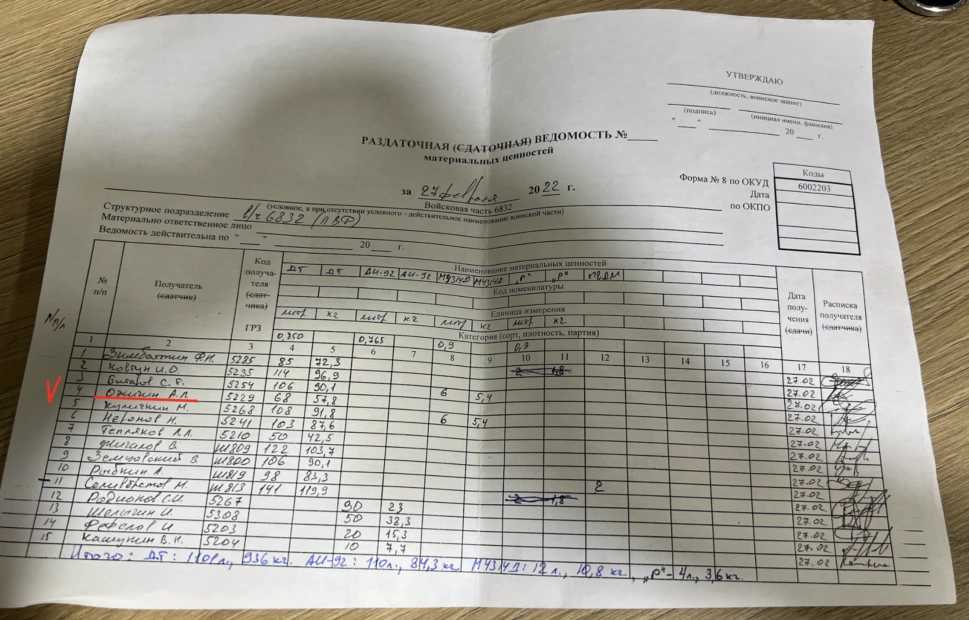 УТВЕРЖДАЮ
(должность, воинское звание)
(подпись) (инициал имени, фамилия)
"___" ________ 20 ___ г.
РАЗДАТОЧНАЯ (СДАТОЧНАЯ) ВЕДОМОСТЬ №
материальных ценностей
за 27 февраля 20 22 г.
Войсковая часть 6832
(условное, а при отсутствии условного - действительное наименование воинской части)
Форма № 8 по ОКУД
Дата
по ОКПО
Коды
6002203
Структурное подразделение в/ч 6832
Материально ответственное лицо
Ведомость действительна по "___" ________ 20 ___ г.
№ п/п Получатель (сдатчик) Код получателя (сдатчика) ГРЗ Наименование материальных ценностей Дата получения (сдачи) Расписка получателя (сдатчика)
ДТ ДТ АИ-92 АИ-92 М43/4D М43/4D "Р" "Р"
Код номенклатуры
Единица измерения
литр кг литр кг литр кг литр кг
Категория (сорт, плотность, партия)
0,850 0,765 0,9 0,9
1 2 3 4 5 6 7 8 9 10 11 12 13 14 15 16 17 18
1 5285 85 72,3 27.02
2 И.О. 5235 114 96,9 2 1,8 27.02
3 С.Г. 5254 106 90,1 27.02
4 Ожигин А.Л. 5229 68 57,8 6 5,4 27.02
5 М. 5268 108 91,8 27.02
6 Н. 5241 103 87,6 6 5,4 27.02
7 Тепляков 5210 50 42,5 27.02
8 Жигалов В. Ш809 122 103,7 27.02
9 Земцовский В Ш800 106 90,1 27.02
10 Ш819 98 83,3 27.02
11 Селивёрстов М. Ш813 141 119,9 2 27.02
12 Родионов С.И. 5267 30 23 2 1,8 27.02
13 Шелигин И. 5308 50 38,3 27.02
14 Фефелов И 5203 20 15,3 27.02
15 Кашунин В.Н. 5204 10 7,7 27.02
Итого: ДТ: 1101 л., 936 кг. АИ-92: 110 л., 84,3 кг. М43/4D: 12 л., 10,8 кг., "Р" - 4 л., 3,6 кг.